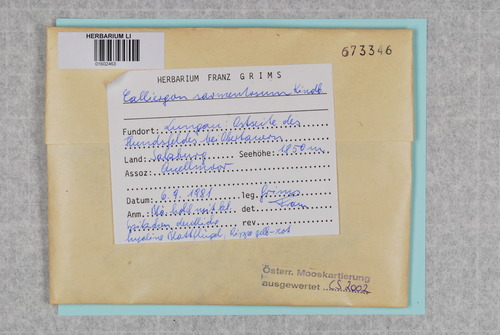 HERBARIUM LI
01602463
673346
HERBARIUM FRANZ GRIMS
Calliergon sarmentosum Kindb
Fundort: Lungau: Ostseite des
Hundsfeldes bei Obertauern
Land: Salzburg Seehöhe: 1850 m
Assoz: Quellmoor
Datum: 6.9.1981 leg. Grims
Anm. det. Franz
rev.
hyaline Blattflügel,
Österr. Mooskartierung
ausgewertet CS 2002